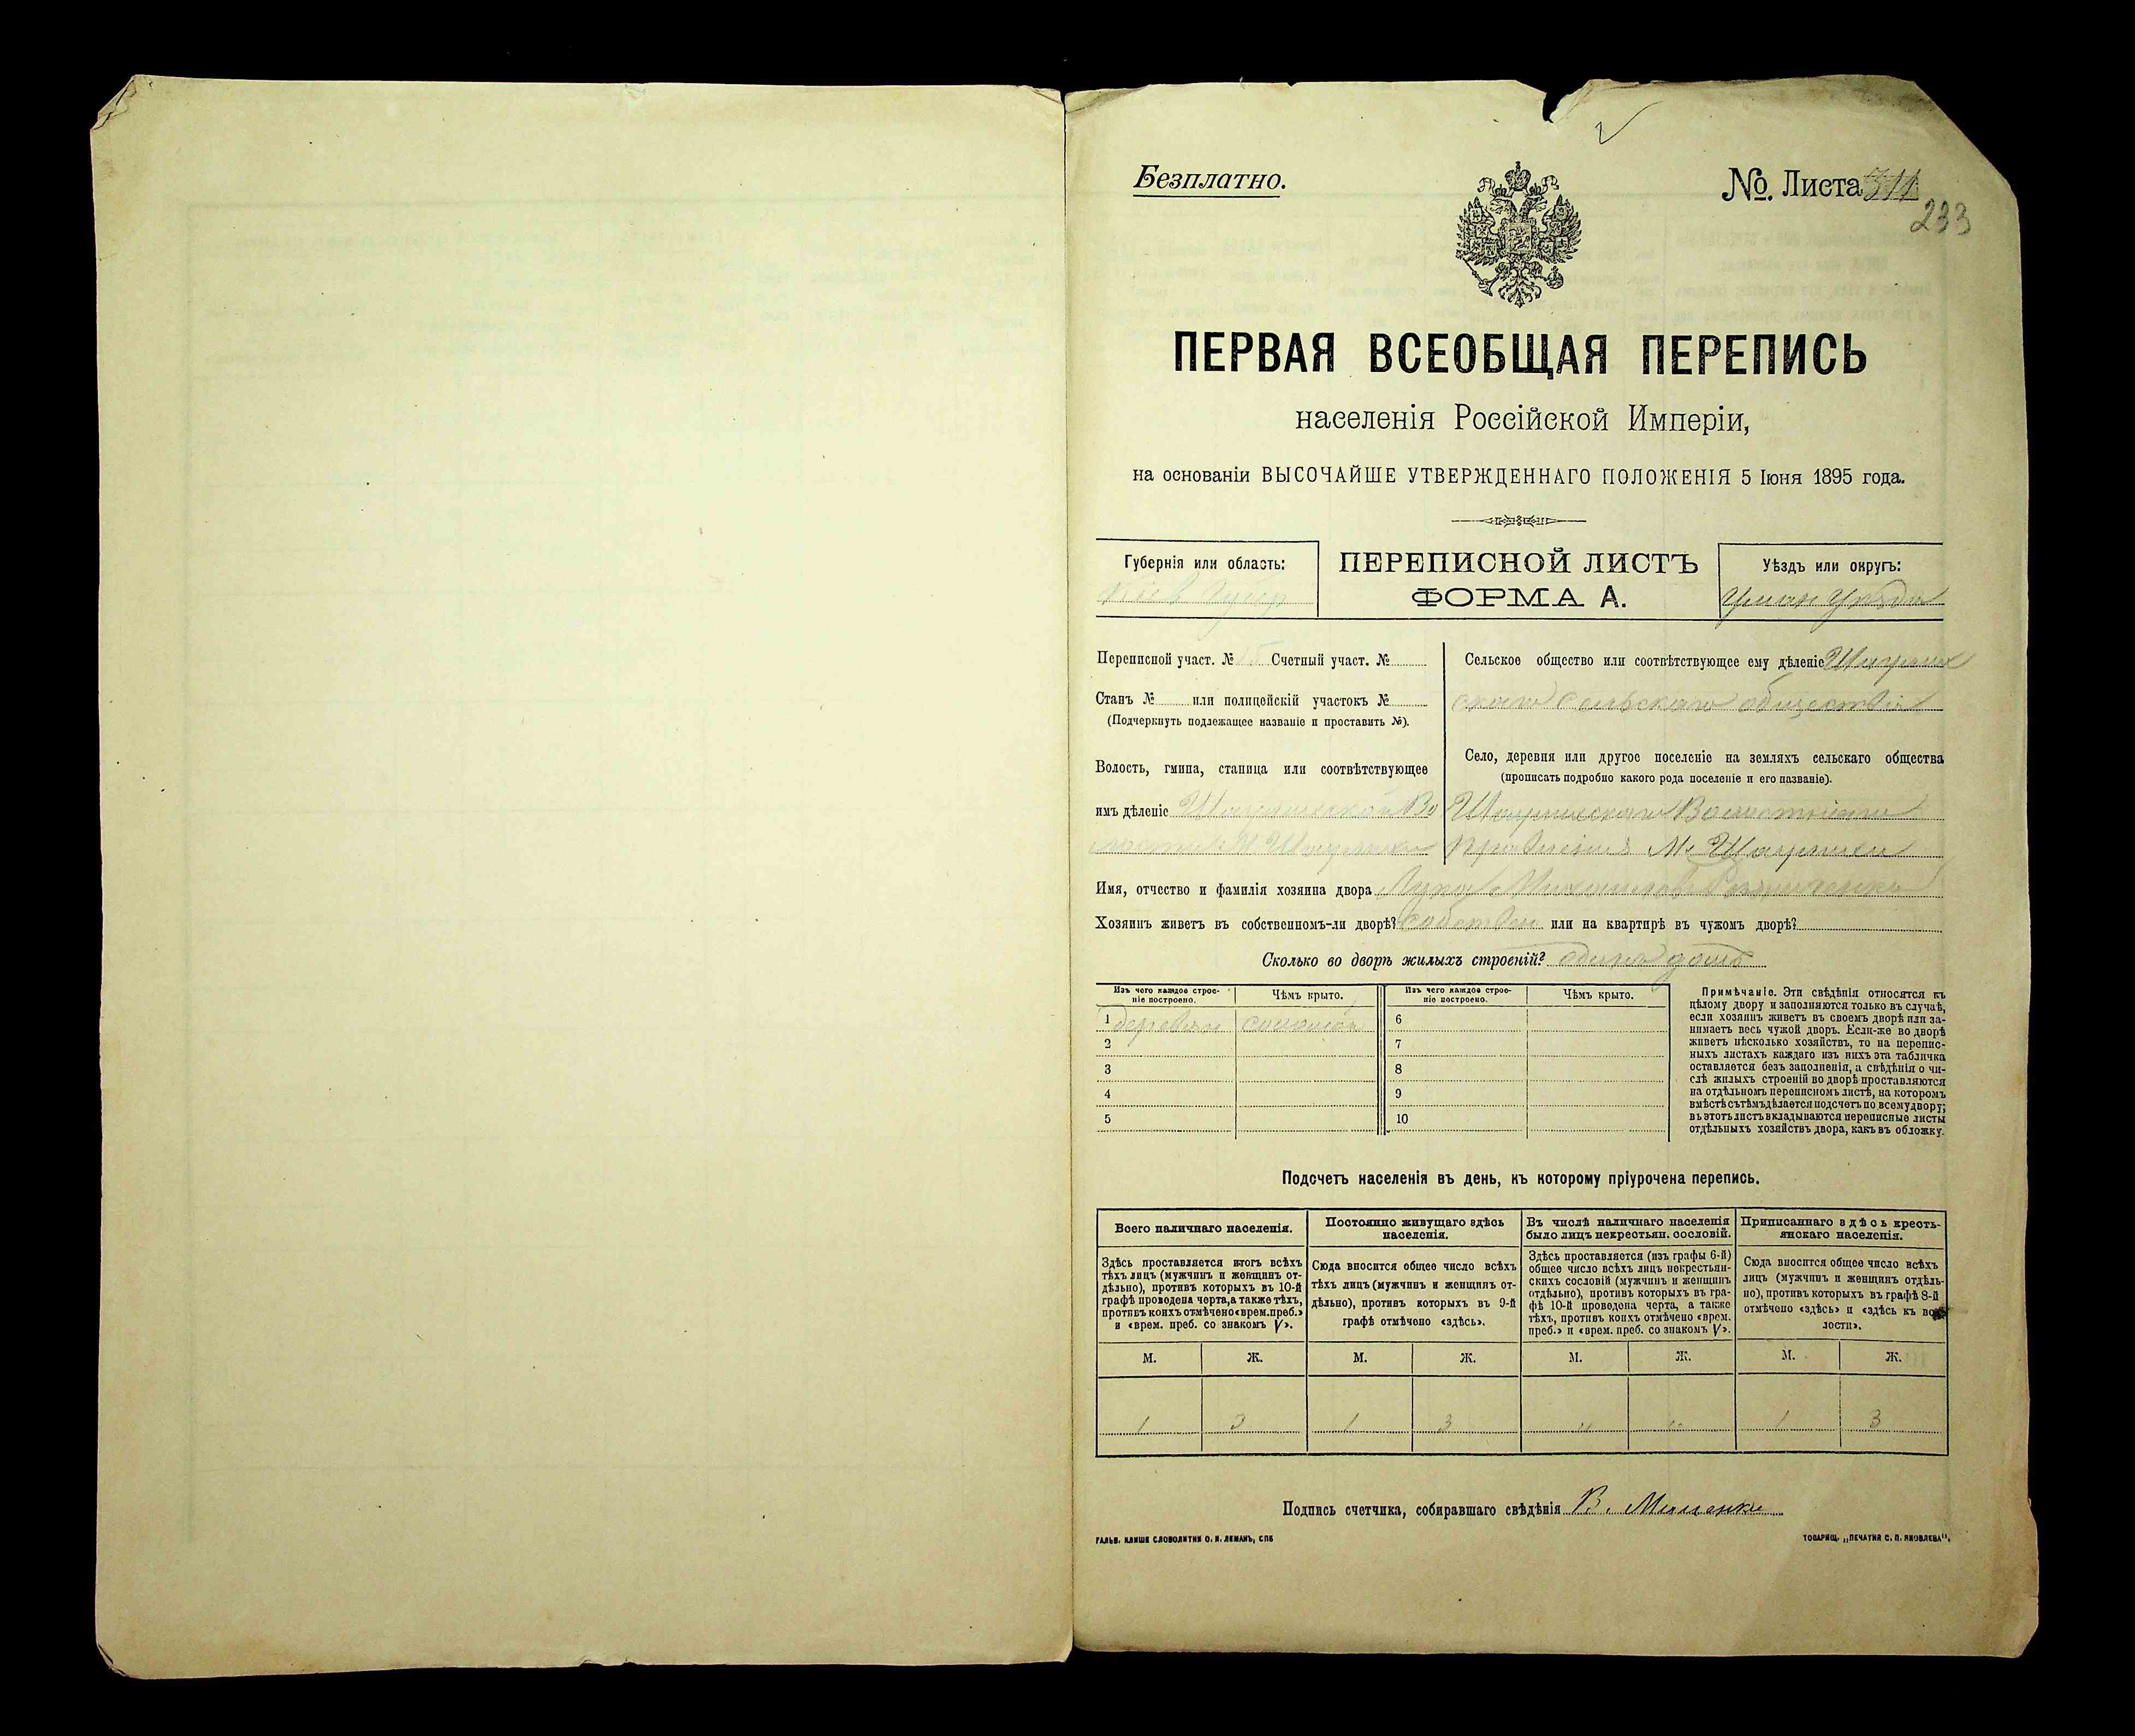 Безплатно.
№. Листа 311
233
ПЕРВАЯ ВСЕОБЩАЯ ПЕРЕПИСЬ
населенія Россійской Имперіи,
на основаніи ВЫСОЧАЙШЕ УТВЕРЖДЕННАГО ПОЛОЖЕНІЯ 5 Іюня 1895 года.
Губернія или область:
Кіев Губер
ПЕРЕПИСНОЙ ЛИСТЪ
ФОРМА А.
Уѣздъ или округъ:
Уман Уѣзда
Переписной участ. № 15 Счетный участ. №
Станъ № или полицейскій участокъ №
(Подчеркнуть подлежащее названіе и проставить №).
Волость, гмина, станица или соотвѣтствующее
имъ дѣленіе
Сельское общество или соотвѣтствующее ему дѣленіе
скаго сельскаго общества
Село, деревня или другое поселеніе на земляхъ сельскаго общества
(прописать подробно какого рода поселеніе и его названіе).
Волостнаго
Правленія М.
Имя, отчество и фамилія хозяина двора
Хозяинъ живетъ въ собственномъ-ли дворѣ? собствен или на квартирѣ въ чужомъ дворѣ?
Сколько во дворѣ жилыхъ строеній? один домъ
Изъ чего каждое строе-
ніе построено.
Чѣмъ крыто.
Изъ чего каждое строе-
ніе построено.
Чѣмъ крыто.
1 деревян
6
2
7
3
8
4
9
5
10
Примѣчаніе. Эти свѣдѣнія относятся къ
цѣлому двору и заполняются только въ случаѣ,
если хозяинъ живетъ въ своемъ дворѣ или за-
нимаетъ весь чужой дворъ. Если-же во дворѣ
живетъ нѣсколько хозяйствъ, то на перепис-
ныхъ листахъ каждаго изъ нихъ эта табличка
оставляется безъ заполненія, а свѣдѣнія о чи-
слѣ жилыхъ строеній во дворѣ проставляются
на отдѣльномъ переписномъ листѣ, на которомъ
вмѣстѣ съ тѣмъ дѣлается подсчетъ по всему двору;
въ этотъ листъ вкладываются переписные листы
отдѣльныхъ хозяйствъ двора, какъ въ обложку.
Подсчетъ населенія въ день, къ которому пріурочена перепись.
Всего наличнаго населенія.
Здѣсь проставляется итогъ всѣхъ
тѣхъ лицъ (мужчинъ и женщинъ от-
дѣльно), противъ которыхъ въ 10-й
графѣ проведена черта, а также тѣхъ,
противъ коихъ отмѣчено «врем. преб.»
и «врем. преб. со знакомъ V».
Постоянно живущаго здѣсь
населенія.
Сюда вносится общее число всѣхъ
тѣхъ лицъ (мужчинъ и женщинъ от-
дѣльно), противъ которыхъ въ 9-й
графѣ отмѣчено «здѣсь».
Въ числѣ наличнаго населенія
было лицъ некрестьян. сословій.
Здѣсь проставляется (изъ графы 6-й)
общее число всѣхъ лицъ некрестьян-
скихъ сословій (мужчинъ и женщинъ
отдѣльно), противъ которыхъ въ гра-
фѣ 10-й проведена черта, а также
тѣхъ, противъ коихъ отмѣчено «врем.
преб.» и «врем. преб. со знакомъ V».
Приписаннаго здѣсь кресть-
янскаго населенія.
Сюда вносится общее число всѣхъ
лицъ (мужчинъ и женщинъ отдѣль-
но), противъ которыхъ въ графѣ 8-й
отмѣчено «здѣсь» и «здѣсь къ во-
лости».
М. Ж. М. Ж. М. Ж. М. Ж.
1 3 1 3 " " 1 3
Подпись счетчика, собиравшаго свѣдѣнія В.
ГАЛЬВ. КЛИШЕ СЛОВОЛИТНИ О. И. ЛЕМАНЪ, СПБ
ТОВАРИЩ. „ПЕЧАТНЯ С. П. ЯКОВЛЕВА".